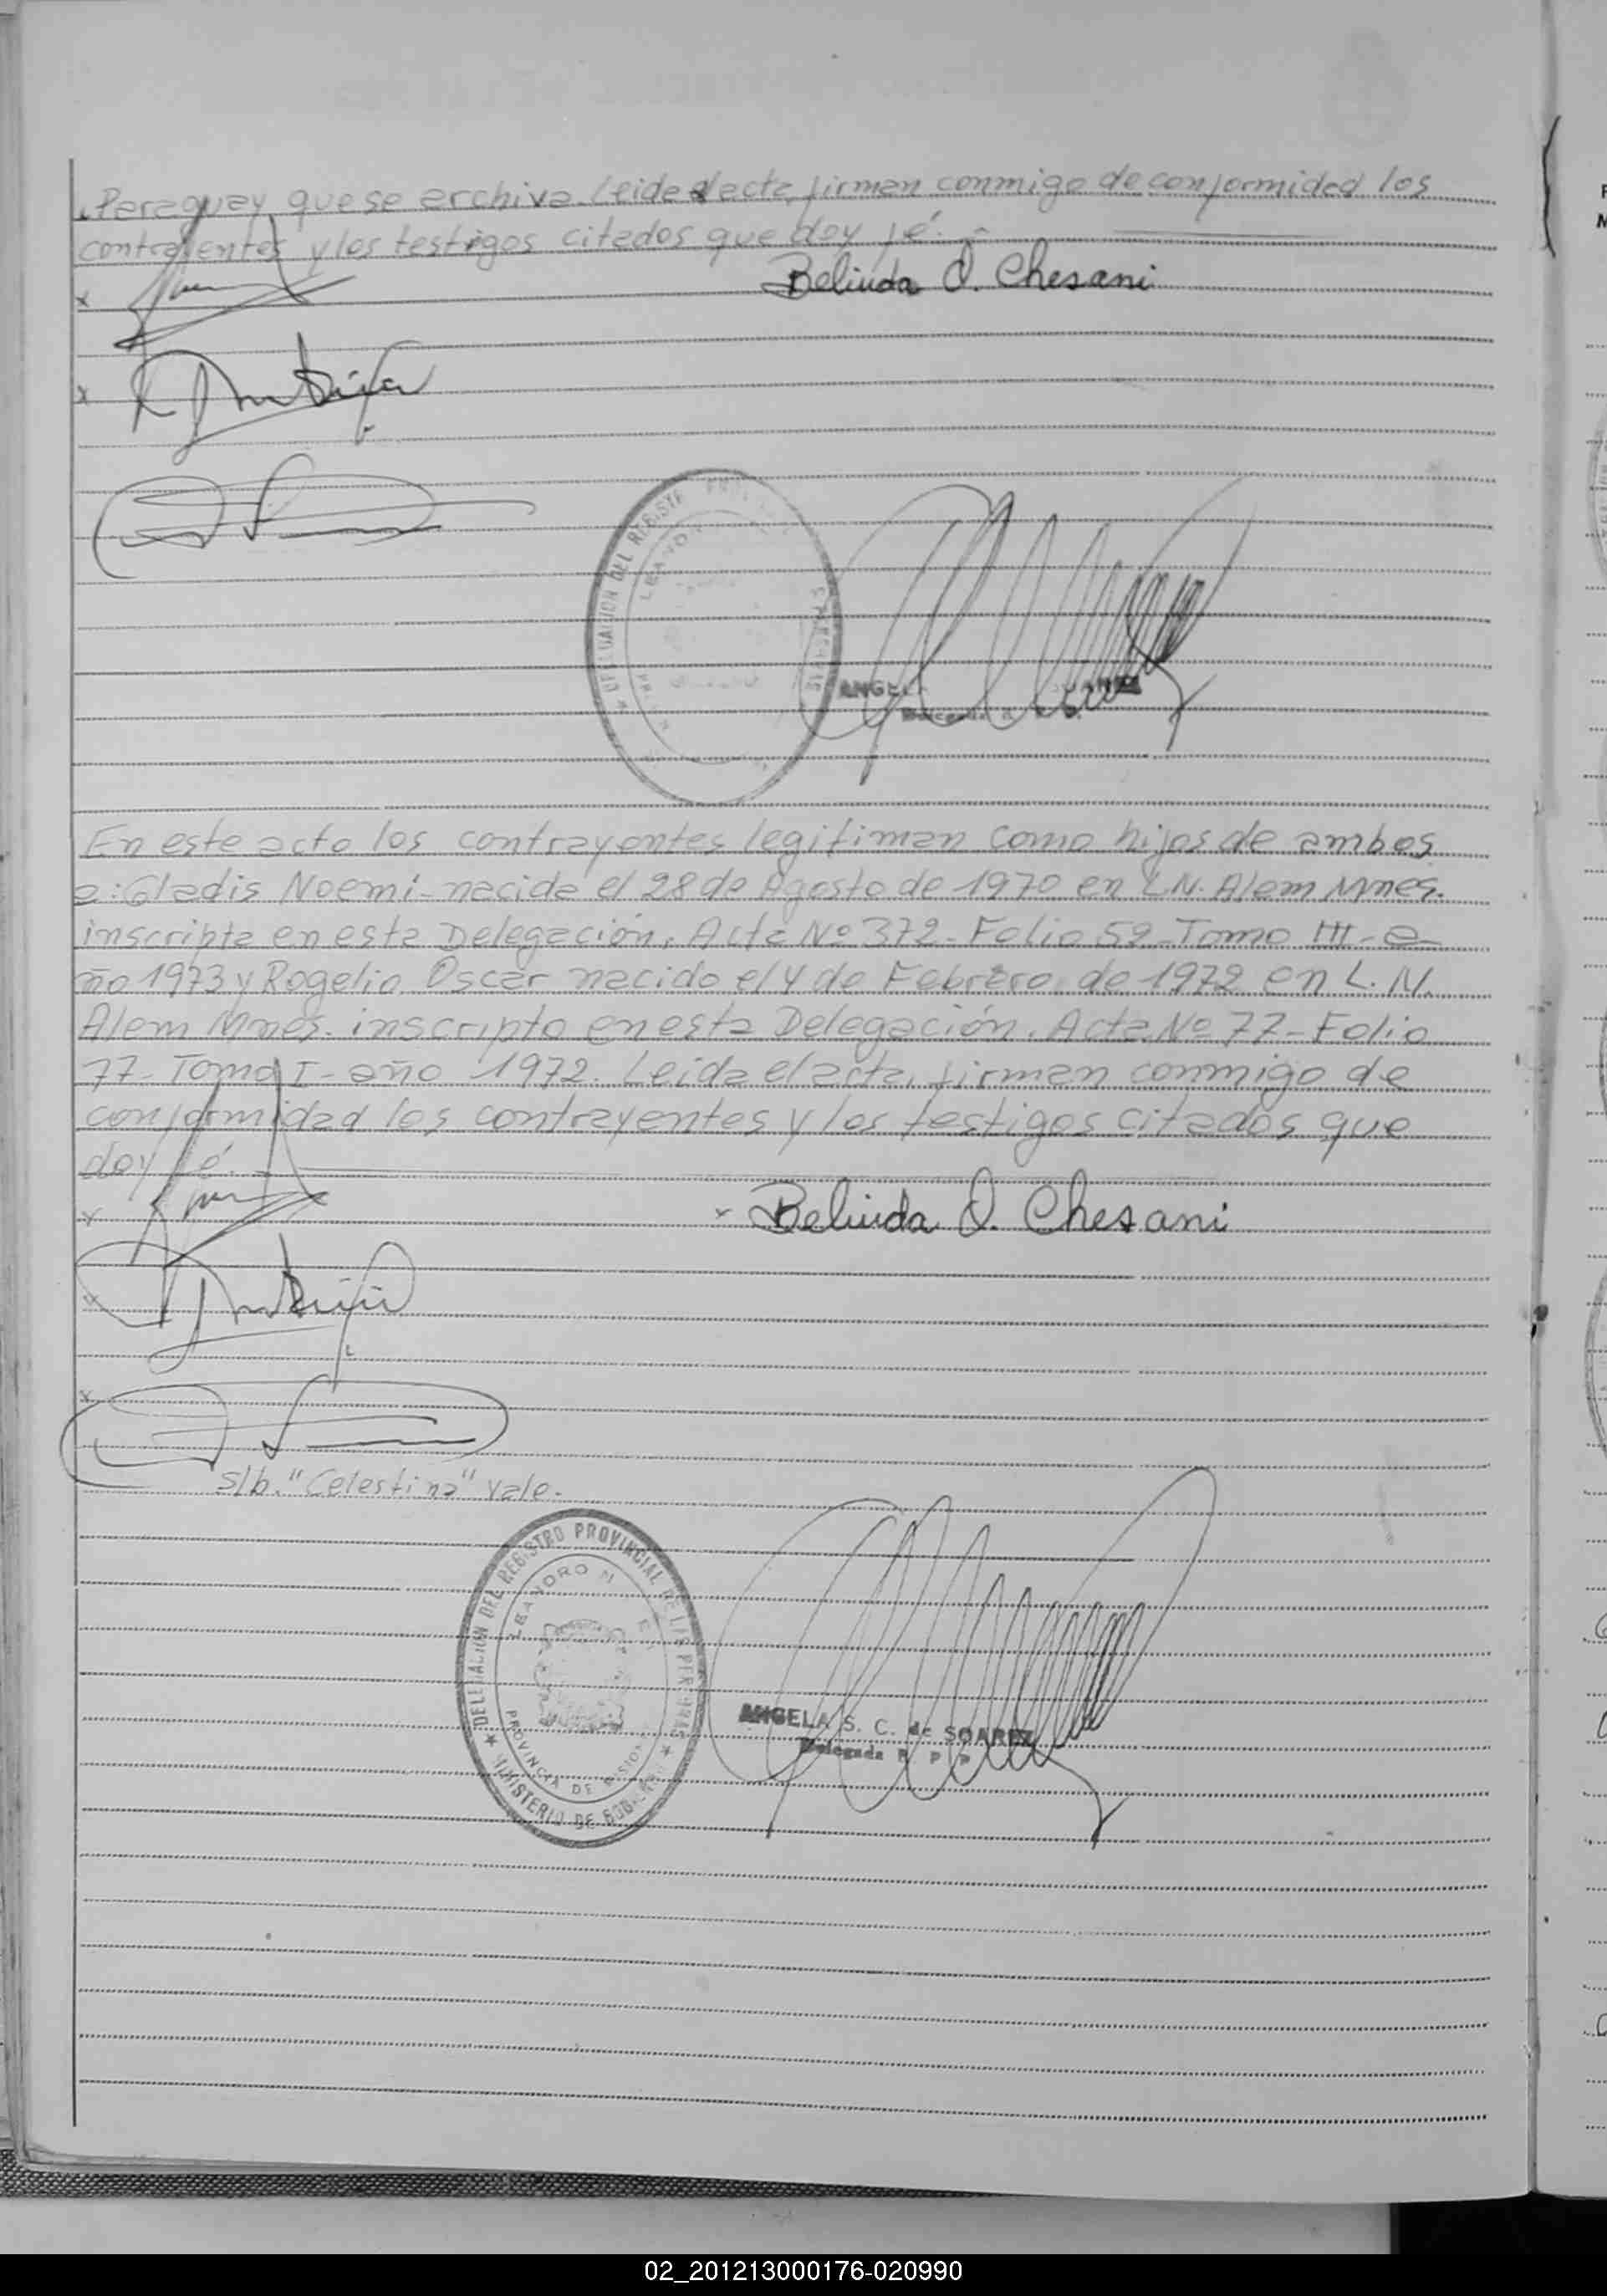 Paraguay que se archiva. Leida el acta, firman conmigo de conformidad los
contrayentes y los testigos citados que doy fé.-
x
Belinda O. Chesani
x
DELEGACION DEL REGISTRO
LEANDRO
ANGELA
En este acto los contrayentes legitiman como hijos de ambos
a: Gladis Noemi - nacida el 28 de Agosto de 1970 en L.N. Alem Mnes.
inscripta en esta Delegación. Acta Nº 372 - Folio 52 - Tomo III - a-
ño 1973 y Rogelio Oscar nacido el 4 de Febrero de 1972 en L. N.
Alem Mnes. inscripto en esta Delegación. Acta Nº 77 - Folio
77 - Tomo I - año 1972. Leida el acta, firman conmigo de
conformidad los contrayentes y los testigos citados que
doy fé.
x
x Belinda O. Chesani
x
x
s/b. "Celestina" Vale.
DELEGACION DEL REGISTRO PROVINCIAL DE LAS PERSONAS
LEANDRO N
PROVINCIA DE MISIONES
MINISTERIO DE GOBIERNO
ANGELA S. C. de SOAREZ
Delegada R P P
02_201213000176-020990